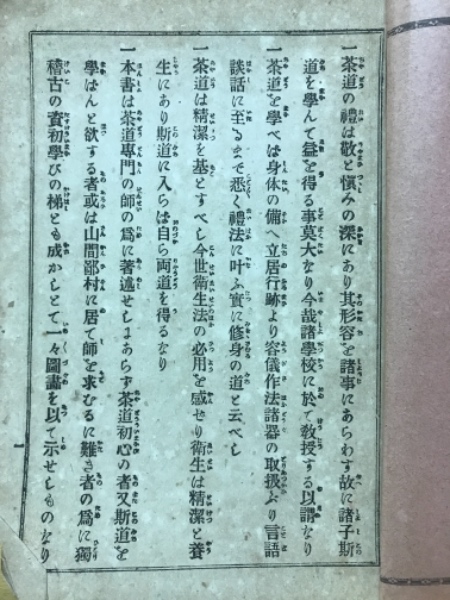 一茶道の禮は敬と愼みの深にあり其形容を諸事にあらわす故に諸子斯
道を學んて益を得る事莫大なり今哉諸學校に於て敎授する以謂なり
一茶道を學べは身体の備へ立居行跡より容儀作法諸器の取扱ぶり言語
談話に至るまて悉く禮法に叶ふ實に修身の道と云べし
一茶道は精潔を基とすべし今世衛生法の必用を感せり衛生は精潔と養
生にあり斯道に入らは自ら両道を得るなり
一本書は茶道專門の師の爲に著述せしにあらず茶道初心の者又斯道を
學はんと欲する者或は山間鄙村に居て師を求むるに難き者の爲に獨
稽古の資初學びの梯とも成かしとて一々圖畫を以て示せしものなり
一